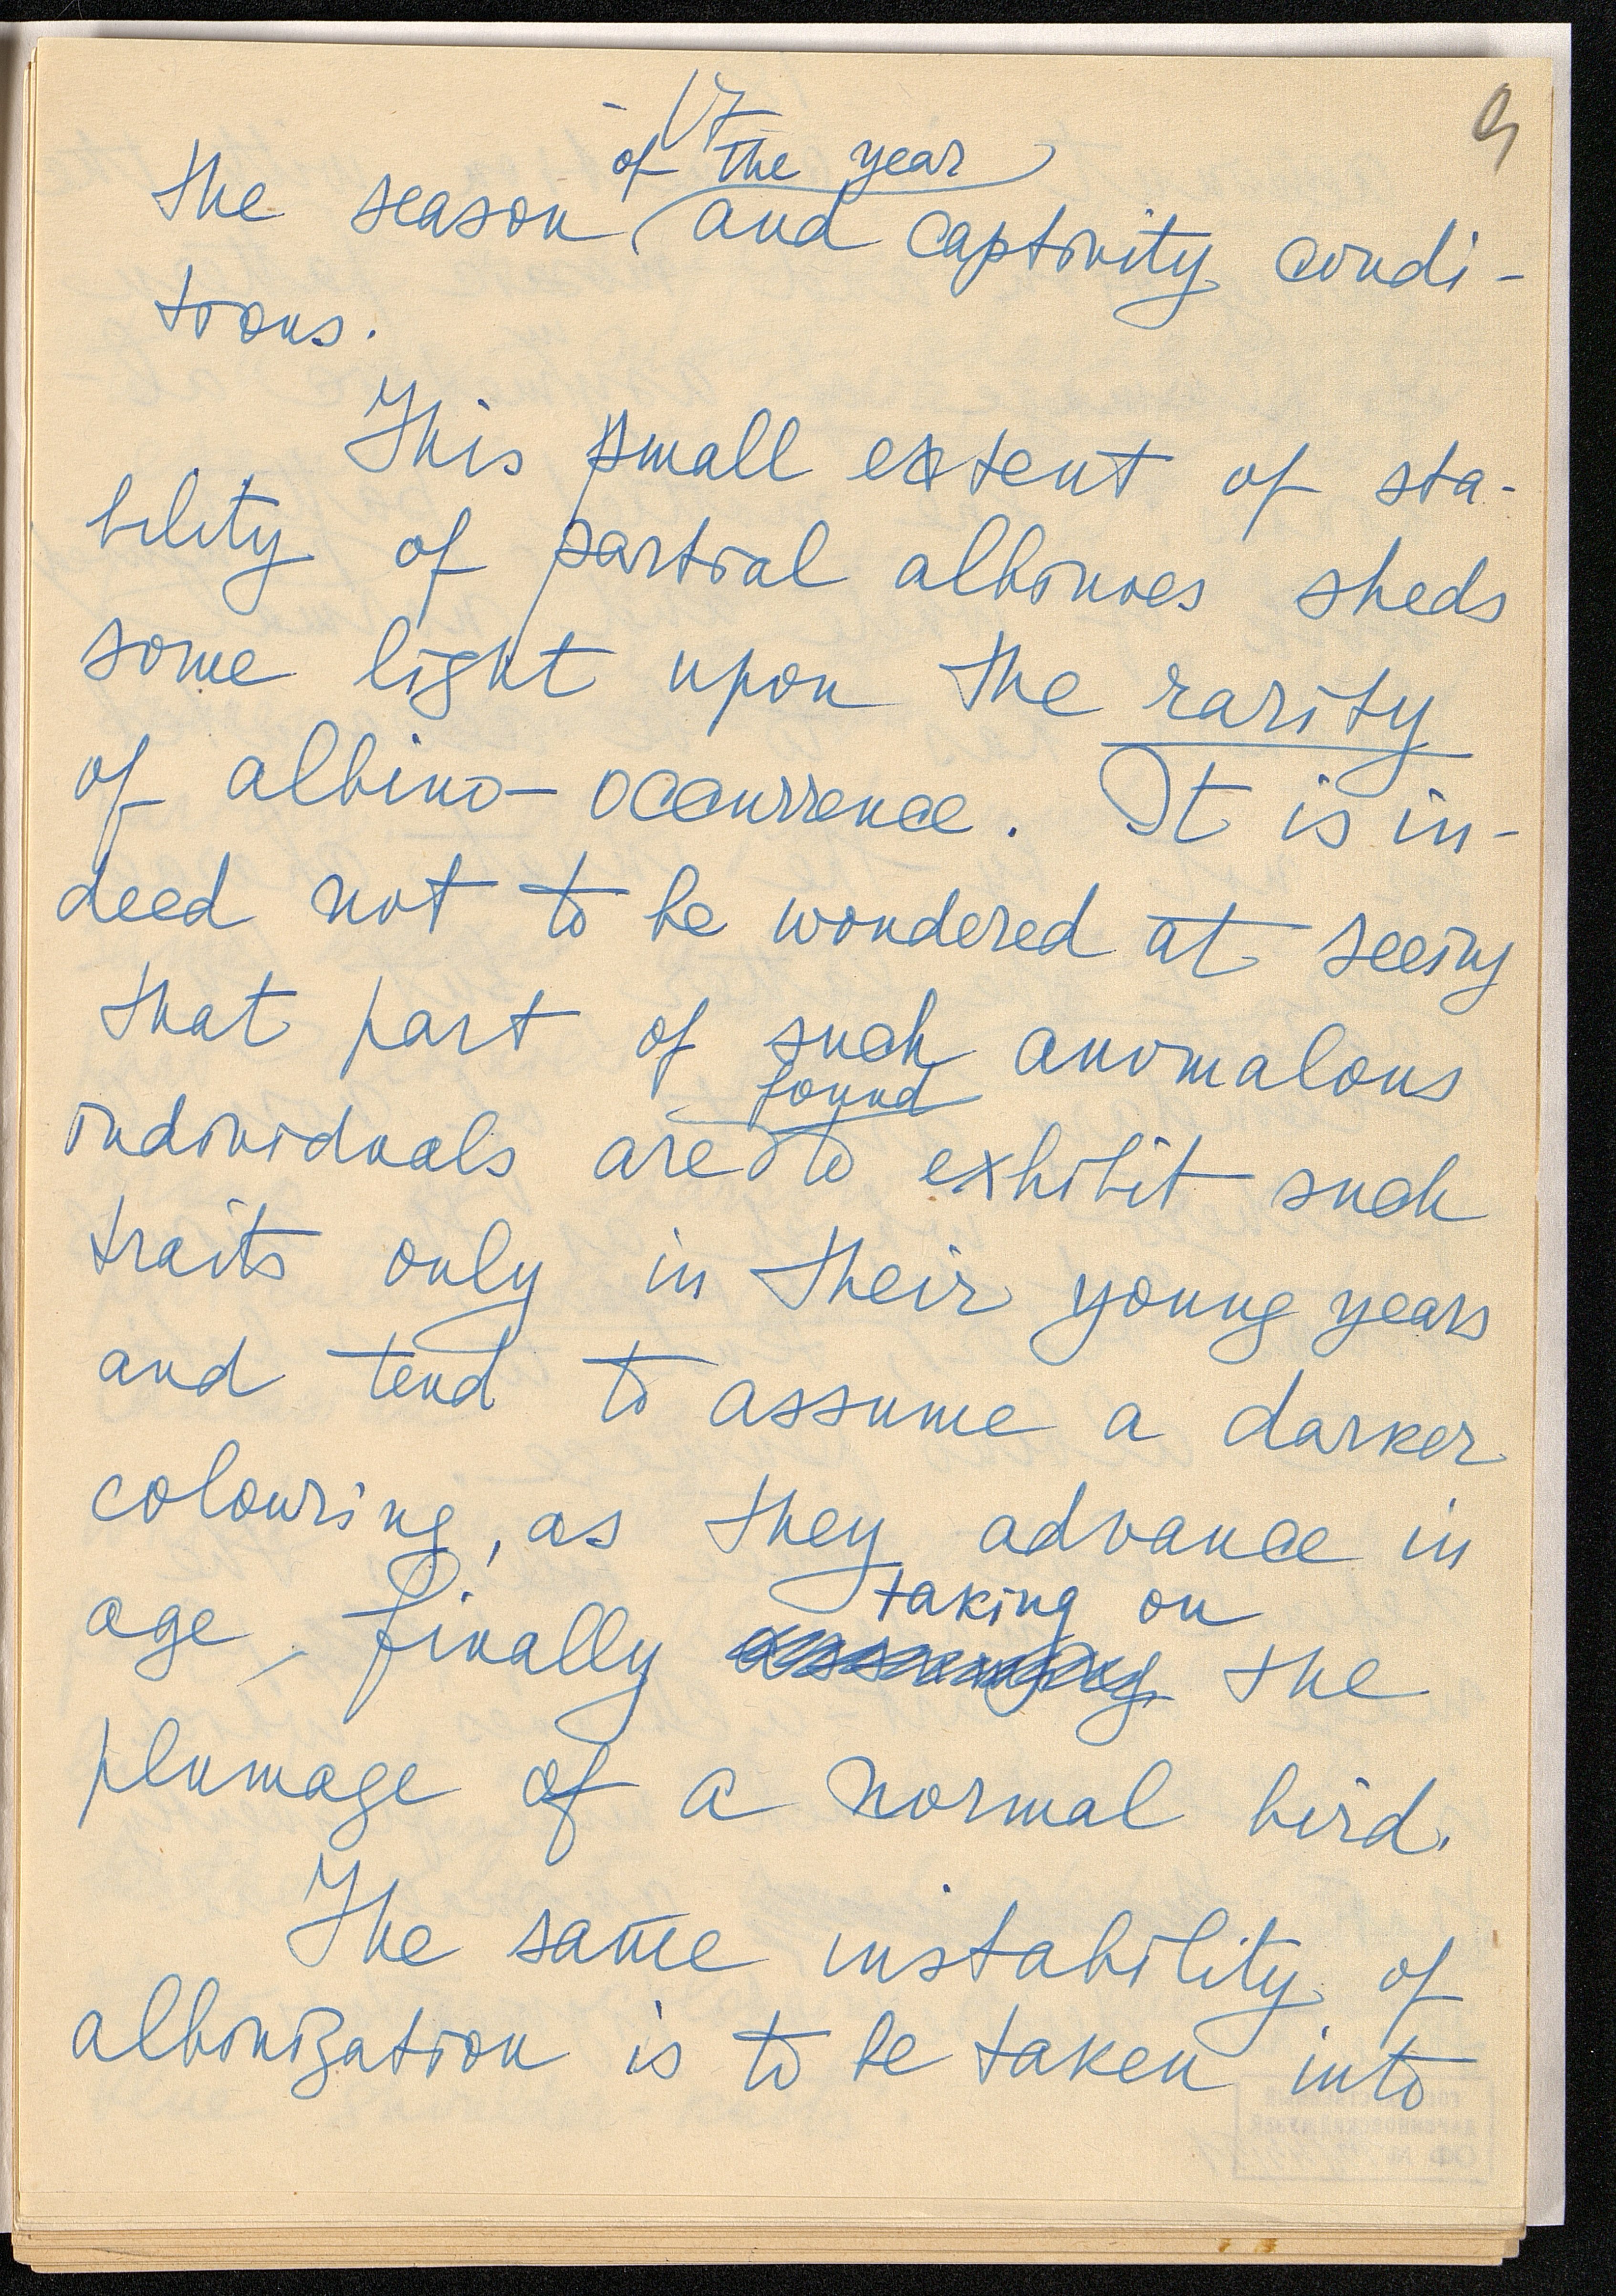 - 17
9
of the year
the season and captivity condi-
tions.
This small extent of sta-
bility of partial albinoes sheds
some light upon the rarity
of albino-occurrence. It is in-
deed not to be wondered at seeing
that part of such anomalous
found
individuals are to exhibit such
traits only in their young years
and tend to assume a darker
colouring, as they advance in
taking on
age, finally assuming the
plumage of a normal bird.
The same instability of
albinization is to be taken into